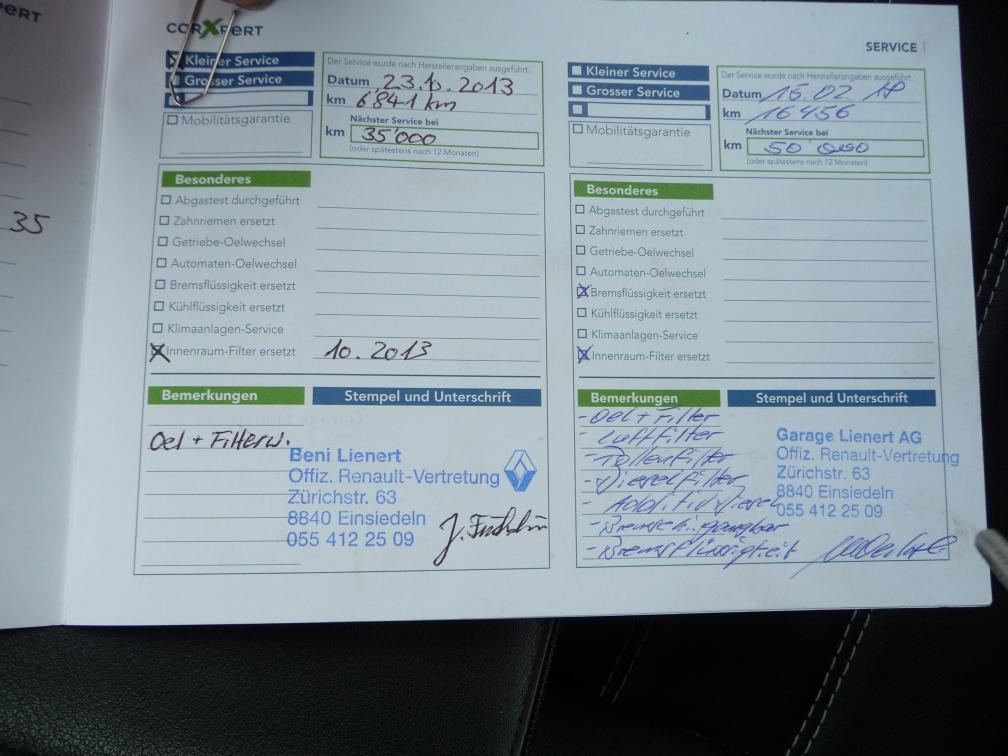 PERT
35
CARXPERT
Kleiner Service
Grosser Service
Mobilitätsgarantie
Der Service wurde nach Herstellerangaben ausgeführt.
Datum 23.10.2013
km 6'841 km
Nächster Service bei
km 35'000
(oder spätestens nach 12 Monaten)
Besonderes
Abgastest durchgeführt
Zahnriemen ersetzt
Getriebe-Oelwechsel
Automaten-Oelwechsel
Bremsflüssigkeit ersetzt
Kühlflüssigkeit ersetzt
Klimaanlagen-Service
Innenraum-Filter ersetzt 10.2013
Bemerkungen
Stempel und Unterschrift
Oel + Filterw.
Beni Lienert
Offiz. Renault-Vertretung
Zürichstr. 63
8840 Einsiedeln
055 412 25 09
SERVICE
Kleiner Service
Grosser Service
Mobilitätsgarantie
Der Service wurde nach Herstellerangaben ausgeführt.
Datum 16.02
km 16456
Nächster Service bei
km 50'000
(oder spätestens nach 12 Monaten)
Besonderes
Abgastest durchgeführt
Zahnriemen ersetzt
Getriebe-Oelwechsel
Automaten-Oelwechsel
Bremsflüssigkeit ersetzt
Kühlflüssigkeit ersetzt
Klimaanlagen-Service
Innenraum-Filter ersetzt
Bemerkungen
Stempel und Unterschrift
- Oel + Filter
- Luftfilter
- Pollenfilter
- Dieselfilter
- Bremsflüssigkeit
Garage Lienert AG
Offiz. Renault-Vertretung
Zürichstr. 63
8840 Einsiedeln
055 412 25 09